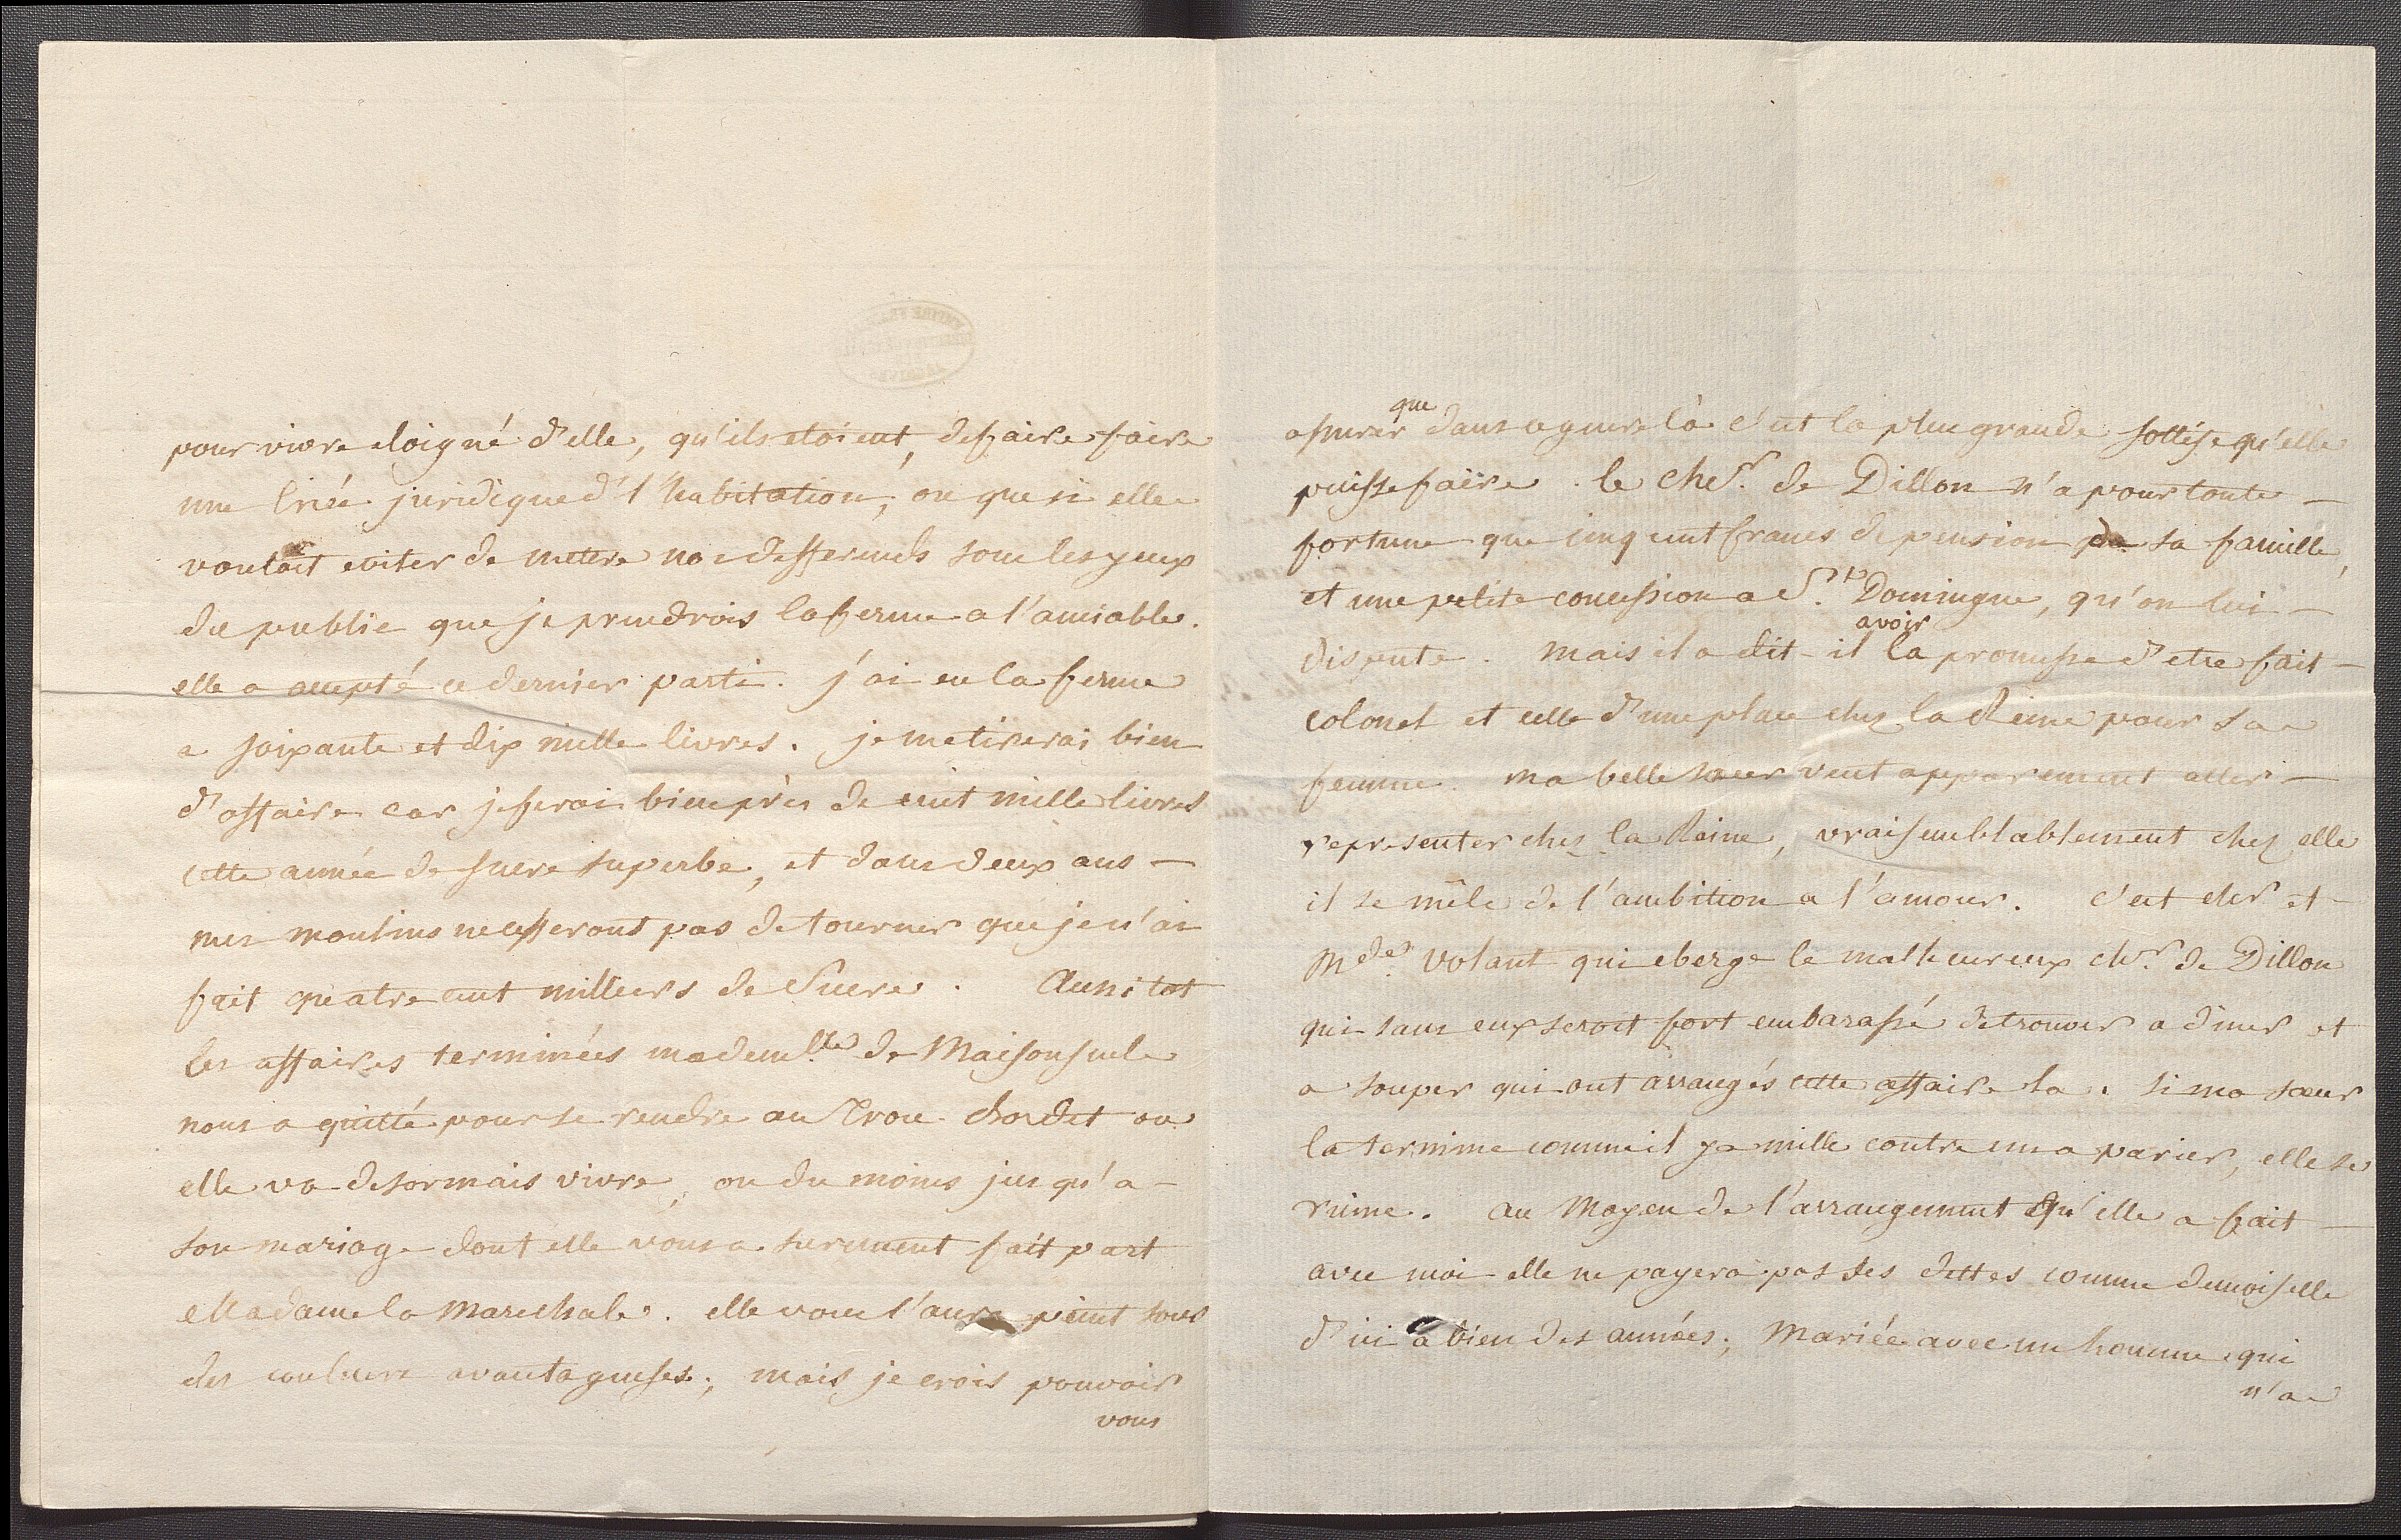 pour vivre eloigné d'elle, qu'ils etoient, de faire faire
une criée juridique d'l'habitation; ou que si elle
vouloit eviter de mettre nos differends sous les yeux
du public que je prendrois la ferme a l'amiable.
elle a accepté ce dernier parti. j'ai eu la ferme
a soixante et dix mille livres. je me tirerai bien
d'affaire car je ferai bien près de cent mille livres
cette année de sucre superbe, et dans deux ans —
mes moulins ne cesseront pas de tourner que je n'ai
fait quatre cent milliers de Sucre. Aussitot
les affaires terminées mademlle de Maisonselle
nous a quitté pour se rendre au Trou Chordet ou
elle va desormais vivre, ou du moins jusqu'a -
son mariage dont elle vous a surement fait part
Madame la Marechale. elle vous l'aura peint sous
des couleurs avantageuses; mais je crois pouvoir
vous
assurer que dans ce genre là c'est la plus grande sottise qu'elle
puisse faire. le cher. de Dillon n'a pour toute —
fortune que cinq cent francs de pension de sa famille,
et une petite concession a St. Domingue, qu'on lui —
dispute. mais il a dit-il avoir la promesse d'etre fait —
colonel et celle d'une place chez la Reine pour sa
femme. ma belle soeur veut apparement aller —
representer chez la Reine, vraisemblablement chez elle
il se mêle de l'ambition a l'amour. c'est cher et -
Mde. Volant qui eberge le malheureux chr. de Dillon
qui sans eux seroit fort embarassé de trouver a diner et
a souper qui ont arrangés cette affaire la. si ma soeur
la termine comme il y a mille contre un a parier, elle se
ruine. au Moyen de l'arrangement qu'elle a fait —
avec moi elle ne payera pas ses dettes comme demoiselle
d'ici a bien des années; Mariée avec un homme qui
n'a